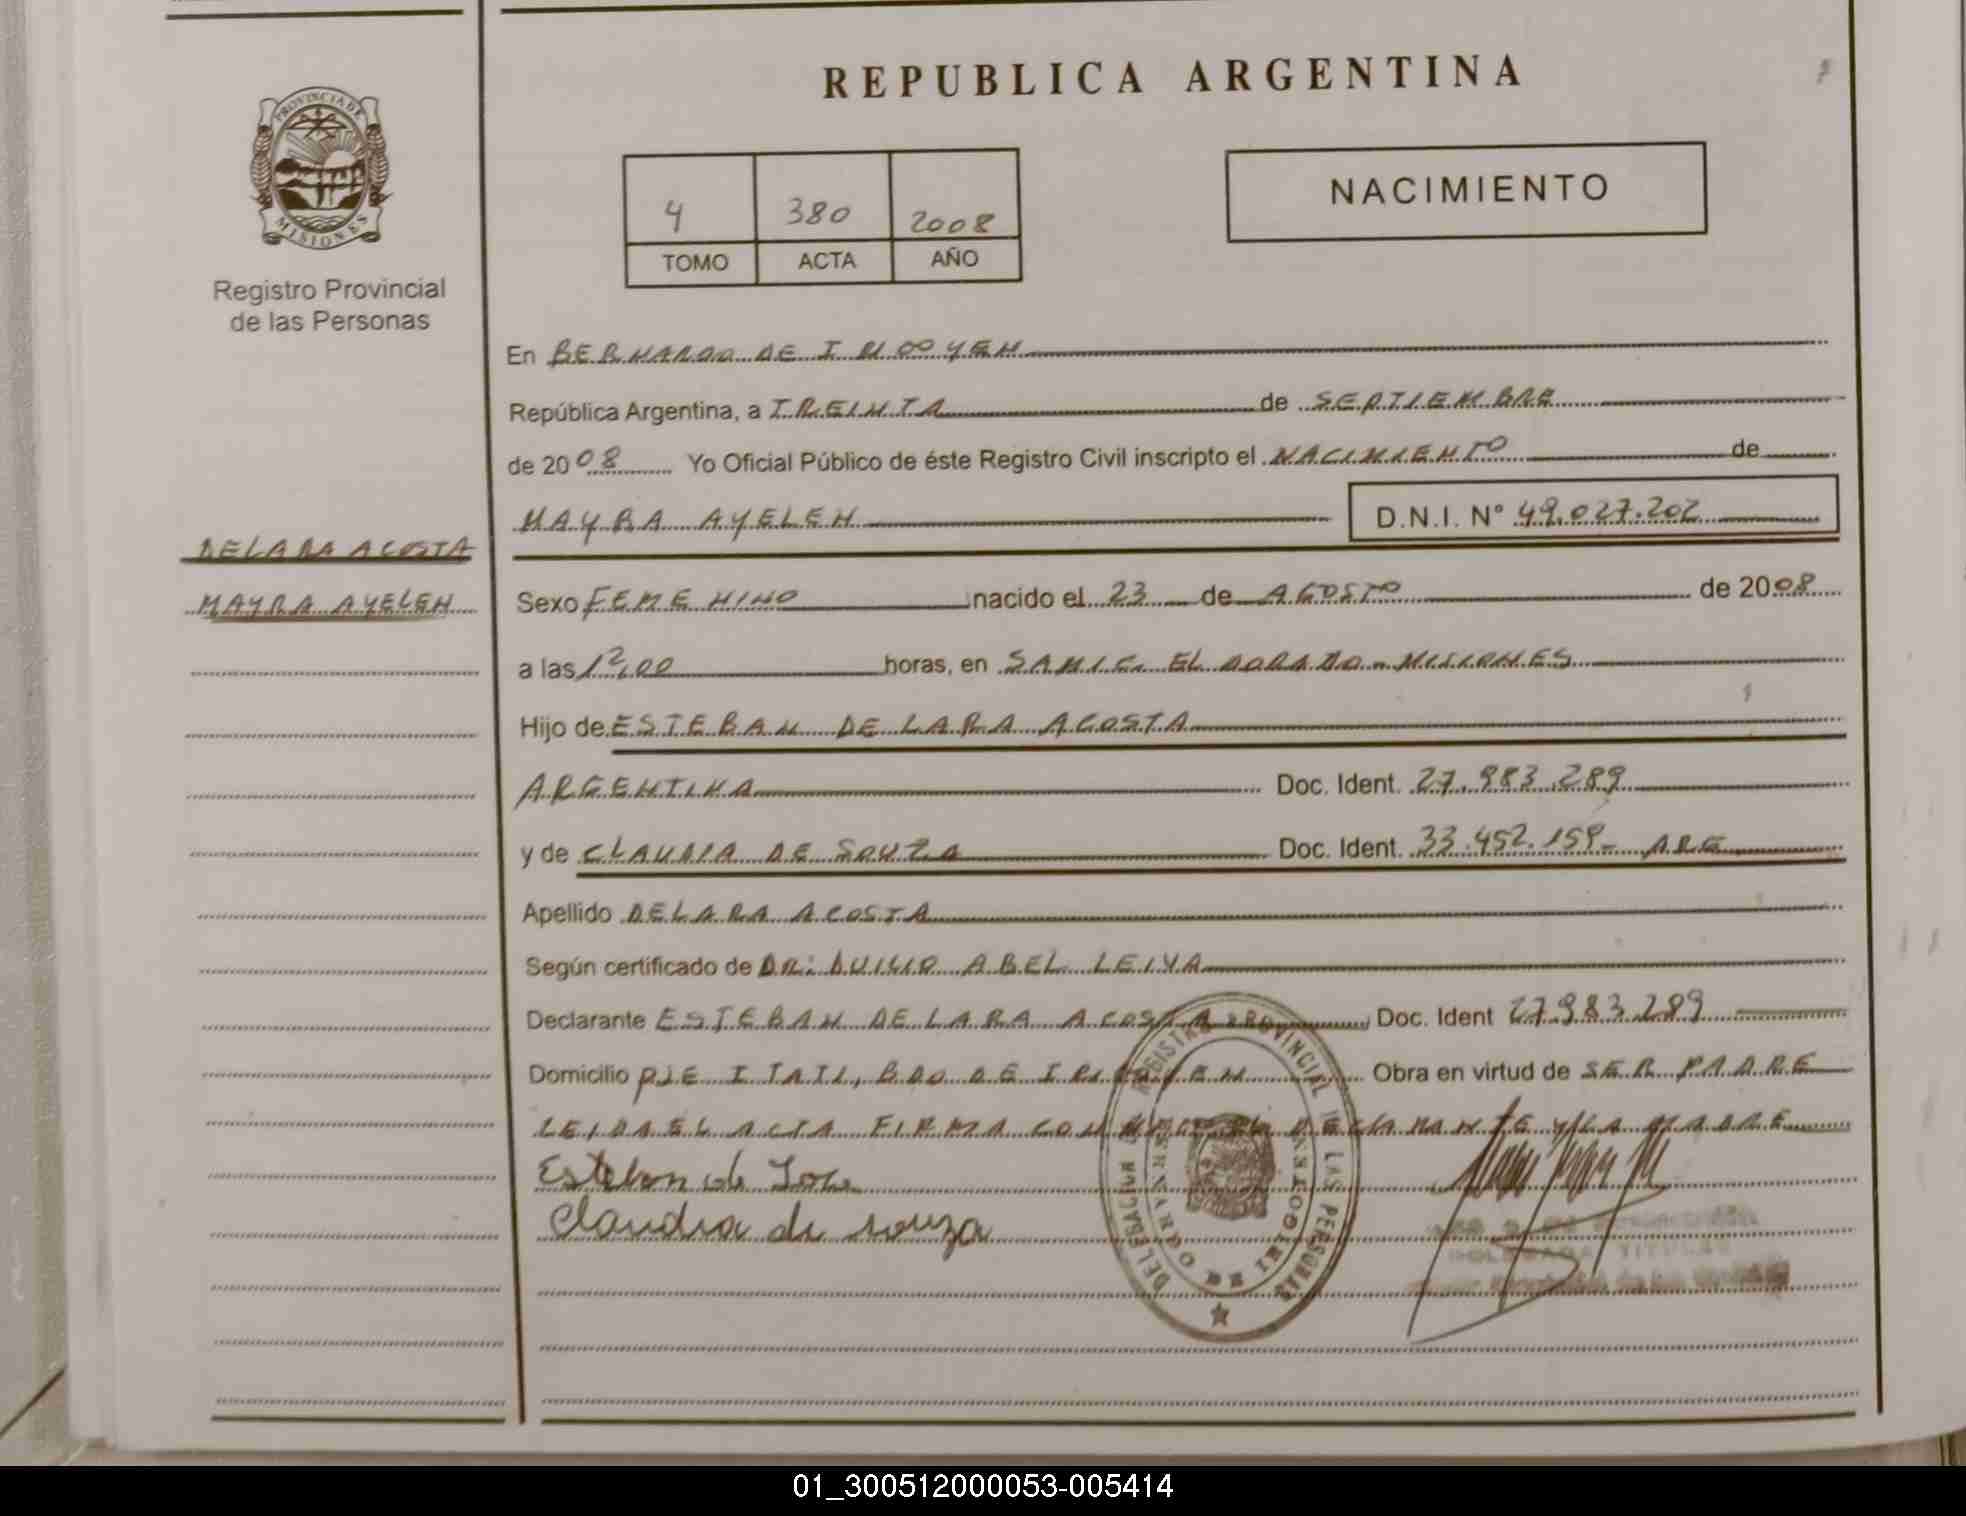 REPUBLICA ARGENTINA
PROVINCIA DE
MISIONES
Registro Provincial
de las Personas
4 380 2008
TOMO ACTA AÑO
NACIMIENTO
En BERNARDO DE IRIGOYEN
República Argentina, a TREINTA de SEPTIEMBRE
de 2008 Yo Oficial Público de éste Registro Civil inscripto el NACIMIENTO de
MAYRA AYELEN D.N.I. N° 49.027.202
DELARA ACOSTA
MAYRA AYELEN
Sexo FEMENINO nacido el 23 de AGOSTO de 2008
a las 12,00 horas, en SAMIC. ELDORADO - MISIONES
Hijo de ESTEBAN DE LARA ACOSTA
ARGENTINA Doc. Ident. 27.983.289
y de CLAUDIA DE SOUZA Doc. Ident. 33.452.159- ARG
Apellido DELARA ACOSTA
Según certificado de DR: DUILIO ABEL LEIVA
Declarante ESTEBAN DE LARA ACOSTA Doc. Ident 27.983.289
Domicilio PJE ITATI, BDO DE IRIGOYEN Obra en virtud de SER PADRE
LEIDA EL ACTA FIRMA CON DECLARANTE Y LA MADRE
Esteban de Lara
Claudia de souza
REGISTRO PROVINCIAL DE LAS PERSONAS
DELEGACION
BERNARDO DE IRIGOYEN
TITULAR
01_300512000053-005414